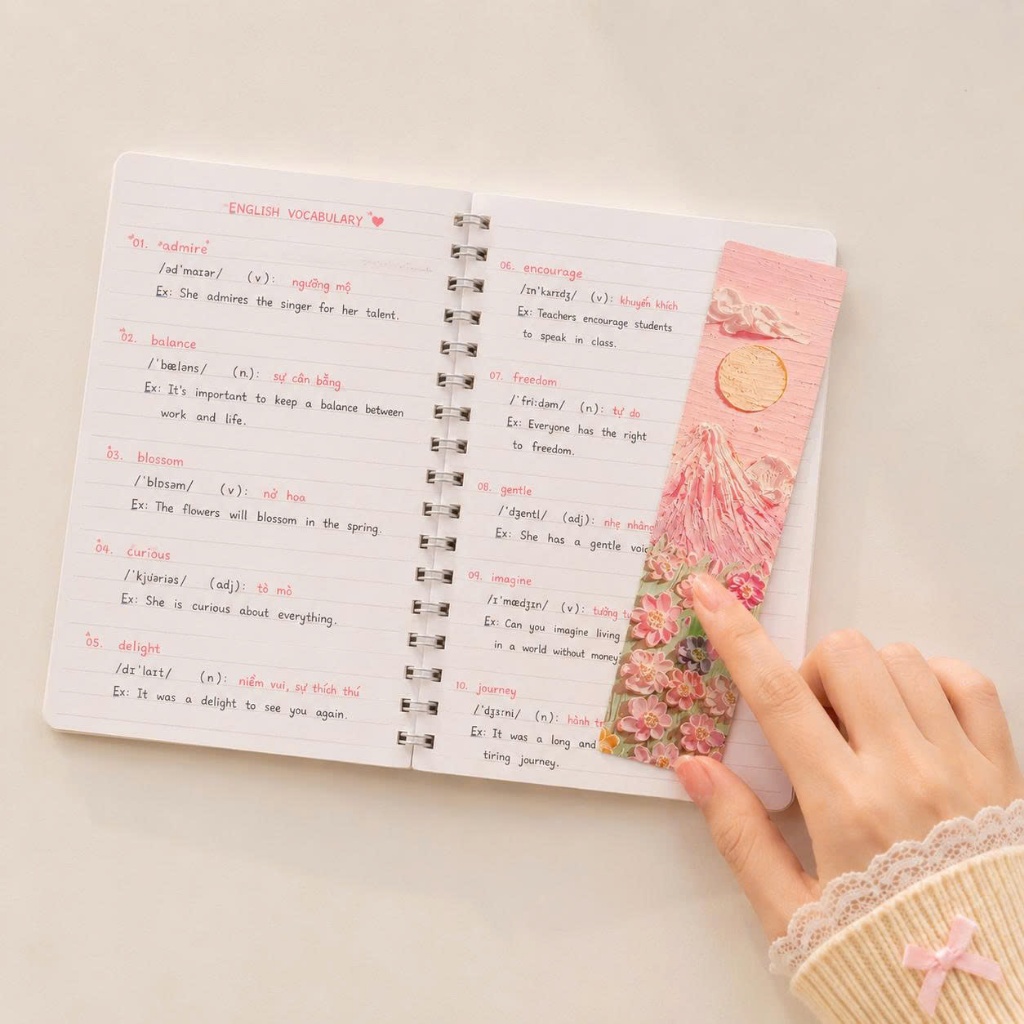 "ENGLISH VOCABULARY" ♥
01. "admire"
/əd'maɪər/ (v): ngưỡng mộ
Ex: She admires the singer for her talent.
02. balance
/'bæləns/ (n.): sự cân bằng
Ex: It's important to keep a balance between
work and life.
03. blossom
/'blɒsəm/ (v): nở hoa
Ex: The flowers will blossom in the spring.
04. curious
/'kjʊəriəs/ (adj): tò mò
Ex: She is curious about everything.
05. delight
/dɪ'laɪt/ (n): niềm vui, sự thích thú
Ex: It was a delight to see you again.
06. encourage
/ɪn'kʌrɪdʒ/ (v): khuyến khích
Ex: Teachers encourage students
to speak in class.
07. freedom
/'fri:dəm/ (n): tự do
Ex: Everyone has the right
to freedom.
08. gentle
/'dʒentl/ (adj): nhẹ nhàng
Ex: She has a gentle
09. imagine
/ɪ'mædʒɪn/ (v): tưởng
Ex: Can you imagine living
in a world without money
10. journey
/'dʒɜ:ni/ (n): hành
Ex: It was a long and
tiring journey.